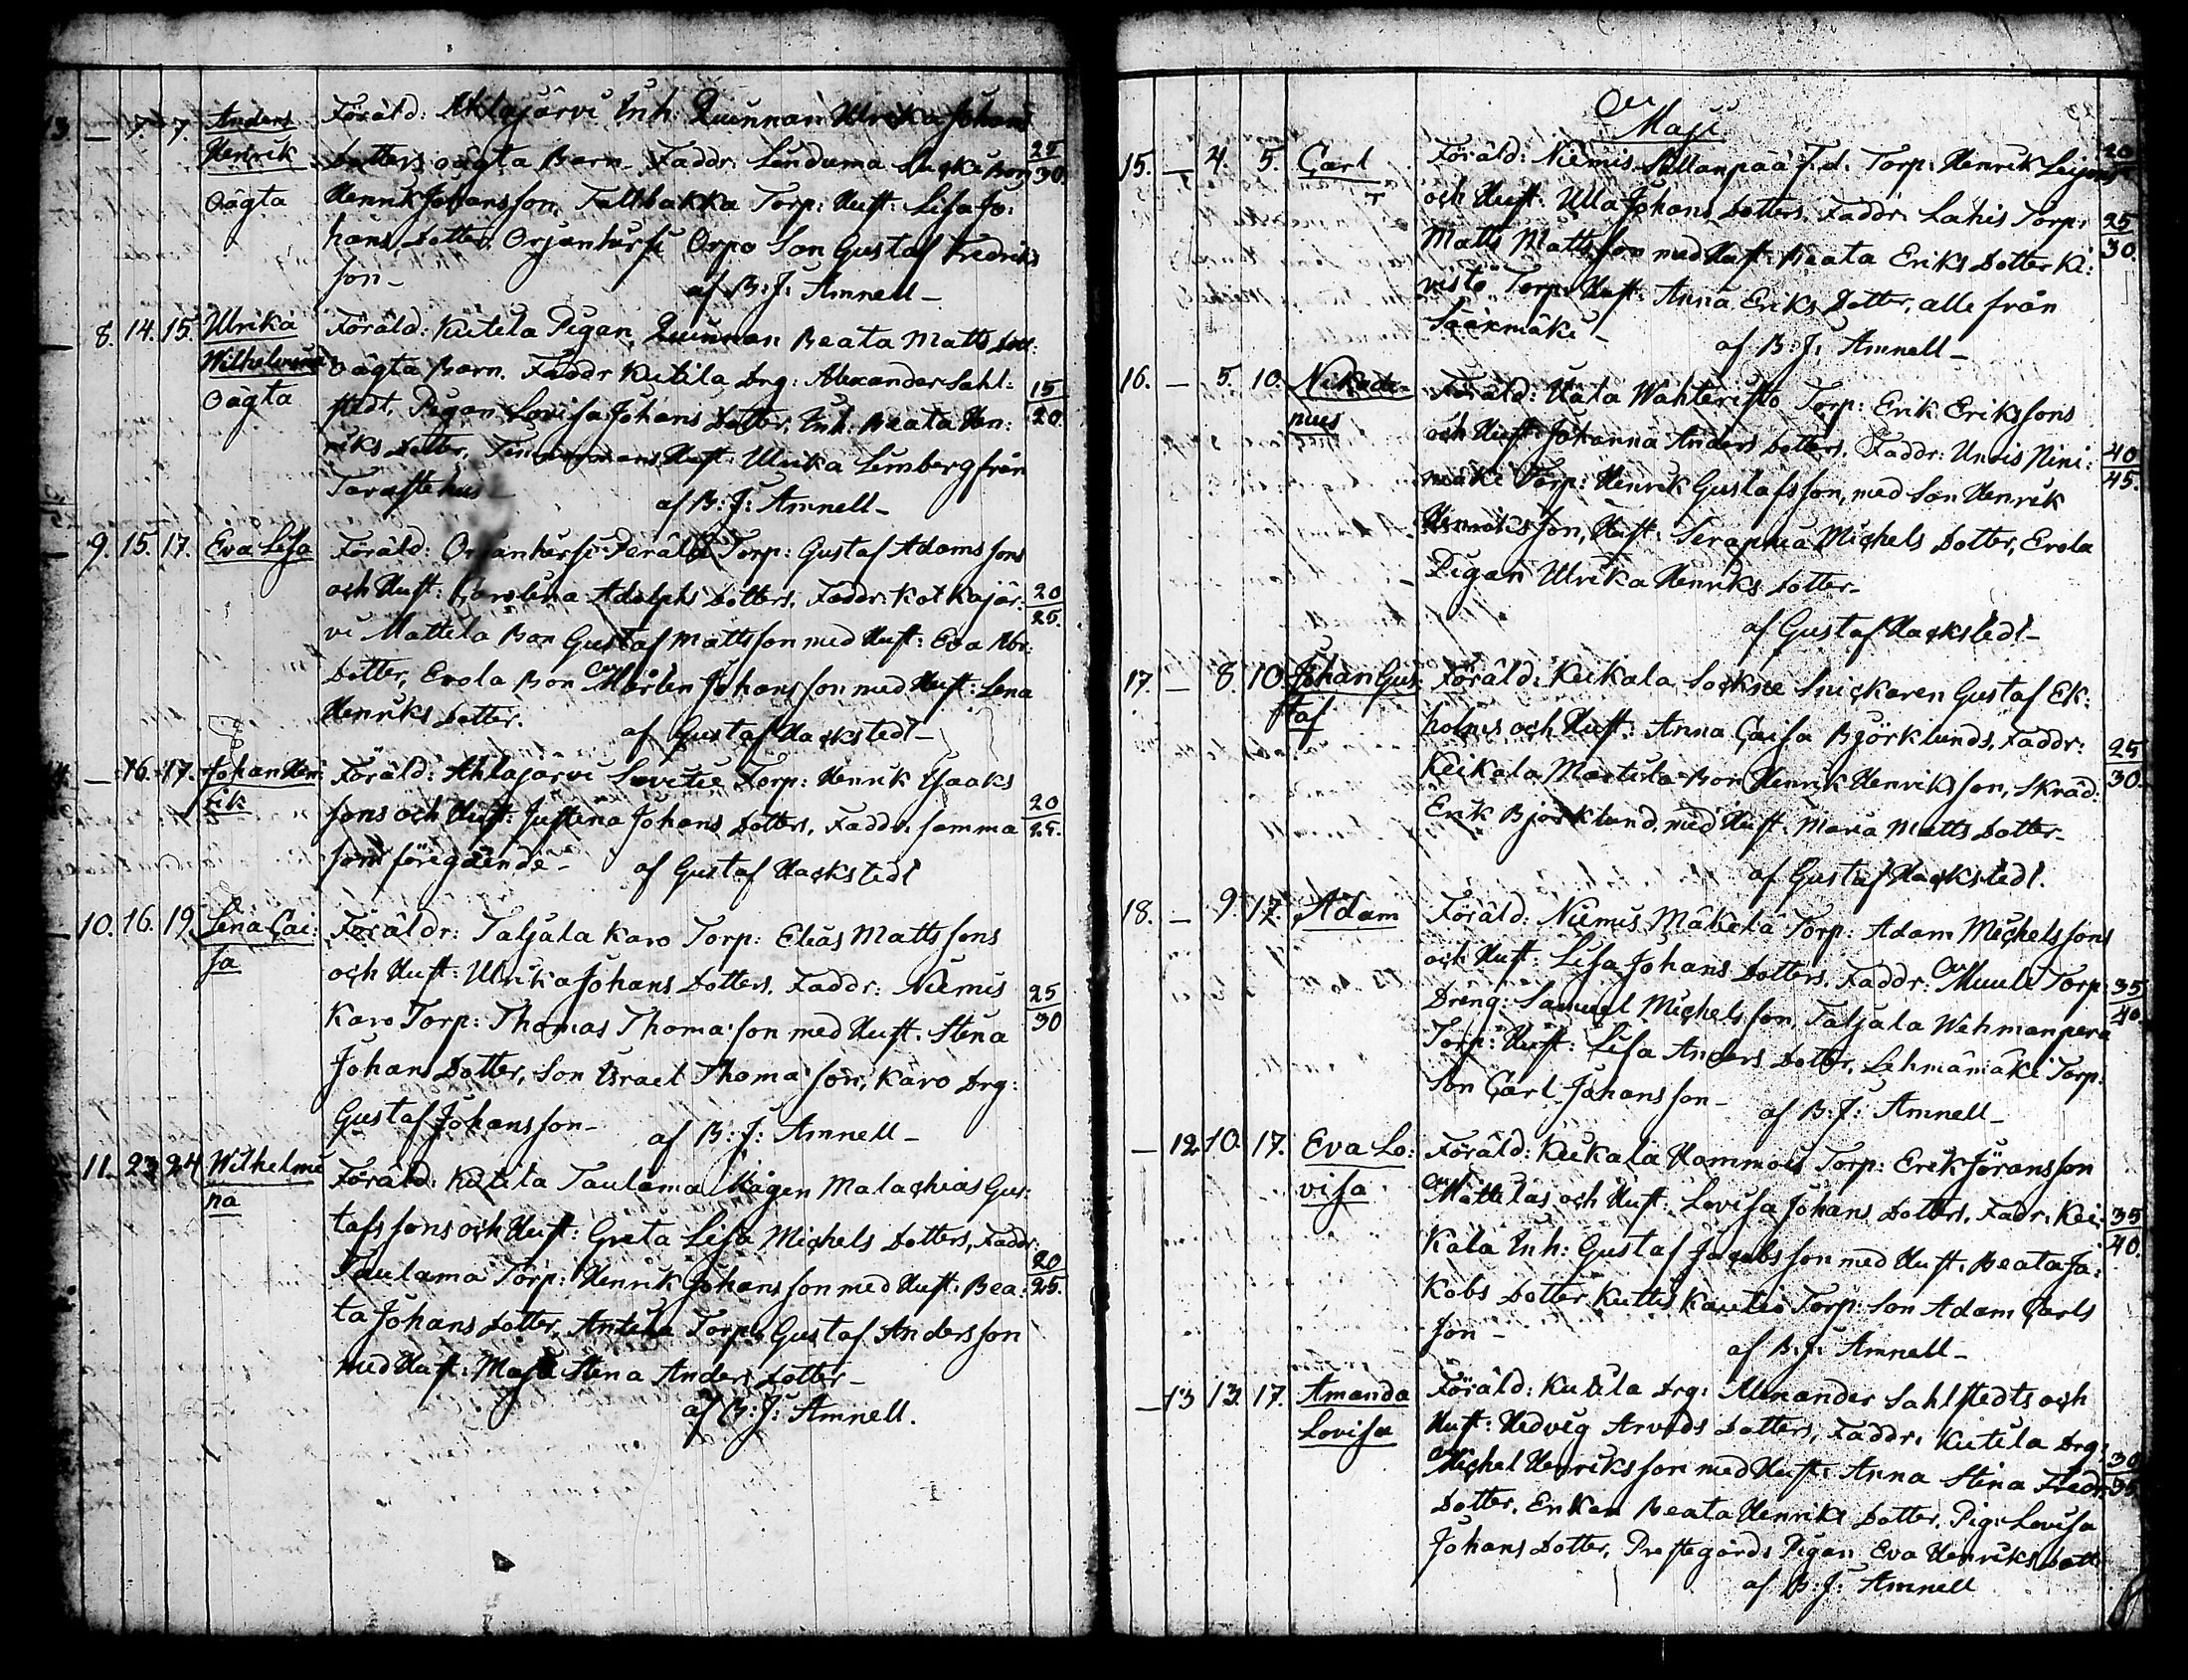 13. — 7. 7. Anders Föräld: Ahlajärvi Inh: Quinnan Ulrika Johans
Henrik Dotters oägta Barn. Faddr: 25
Oägta Henrik Johansson, Tallbakka Torp: Hust: Lisa Jo: 30.
hans Dotter. Orjanhirsi Orpo Son Gustaf Fredriks
son —
af B: J: Amnell —
8. 14. 15. Ulrika Föräld: Kutila Pigan, Quinnan Beata Matts Dott:
Wilhelmina oägta Barn. Faddr Kutila Drg: Alexander Sahl: 15
Oägta stedt, Pigan Lovisa Johans Dotter, Inh: Beata Hen: 20
riks Dotter, Timmermans Hust: Ulrika Limberg från
Tavastehus —
af B: J: Amnell —
9. 15. 17. Eva Lisa Föräld: Orjanhirsi Perälä Torp: Gustaf Adams sons
och Hust: Carolina Adolphs Dotters. Faddr: Kotkajär: 20
vi Mattila Bon Gustaf Mattsson med Hust: Eva Abr: 25.
Dotter, Evola Bon Mårten Johansson med Hust: Lena
Henriks Dotter.
af Gustaf Hackstedt —
14. — 16. 17. Johan Hen: Föräld: Ahlajärvi Torp: Henrik Isaaks
rik sons och Hust: Justina Johans Dotters, Faddr: samma 20
som föregående — af Gustaf Hackstedt 25.
10. 16. 19. Lena Cai: Föräldr: Taljala Karo Torp: Elias Matts sons
sa och Hust: Ulrika Johans Dotters. Faddr: Niemis 25
Karo Torp: Thomas Thoma:son med Hust. Stina 30
Johans Dotter, Son Israel Thoma:son, Karo Drg:
Gustaf Johansson — af B: J: Amnell —
11. 23. 24 Wilhelmi Föräld: Kutila Taulama Mågen Malachias Gus:
na tafs sons och Hust: Greta Lisa Michels Dotters, Faddr:
Taulama Torp: Henrik Johansson med Hust: Bea: 20
ta Johans Dotter, Anttila Torp: Gustaf Andersson 25.
med Hust: Maja Stina Anders Dotter —
af B: J: Amnell.
Maji
15. — 4. 5. Carl Föräld: Niemis Sillanpää F.d. Torp: Henrik Leijons 20
och Hust: Ulla Johans Dotters. Faddr: Lahis Torp: 25
Matts Mattsson med Hust: Beata Eriks Dotter Ki: 30.
vistö Torp: Hust: Anna Eriks Dotter, alle från
Sääxmäki —
af B: J: Amnell —
16. — 5. 10. Nikode= Föräld: Uäla Wahteristo Torp: Erik Erikssons
mus och Hust: Johanna Anders Dotters. Faddr: Unois Nini: 40
mäki Torp: Henrik Gustafsson, med Son Henrik 45.
Henriksson, Hust: Seraphia Michels Dotter, Evola
Pigan Ulrika Henriks Dotter —
af Gustaf Hackstedt —
17. — 8. 10. Johan Gus: Föräld: Keikala Sockne Snickaren Gustaf Ek:
taf holms och Hust: Anna Caisa Björklunds, Faddr: 25
Keikala Martila Bon Henrik Henriksson, Skräd: 30.
Erik Björklund, med Hust: Maria Matts Dotter —
af Gustaf Hackstedt.
18. — 9. 17. Adam Föräld: Niemis Mäkelä Torp: Adam Michelssons
och Hust: Lisa Johans Dotters. Faddr: Muuli Torp: 35
Dreng: Samuel Michelsson, Taljala Wehmanperä 40.
Torp: Hust: Lisa Anders Dotter, Lehmämäki Torp:
Son Carl Johansson —
af B: J: Amnell —
— 12. 10. 17. Eva Lo: Föräld: Keikala Hammois Torp: Erik Jöransson
visa Mattilas och Hust: Lovisa Johans Dotters. Fadr: Kei: 35
kala Inh: Gustaf Jacobsson med Hust: Beata Ja: 40.
kobs Dotter Kuttis Kautio Torp: Son Adam Carls
son —
af B: J: Amnell —
— 13 13. 17. Amanda Föräld: Kutila Drg: Alexander Sahlstedts och
Lovisa Hust: Hedvig Arvids Dotters, Faddr: Kutila Drg:
Michel Henriksson med Hust: Anna Stina Fredr: 30
Dotter. Enkan Beata Henriks Dotter. Pig: Lovisa 35.
Johans Dotter, Prestegårds Pigan Eva Henriks Dott:
af B: J: Amnell